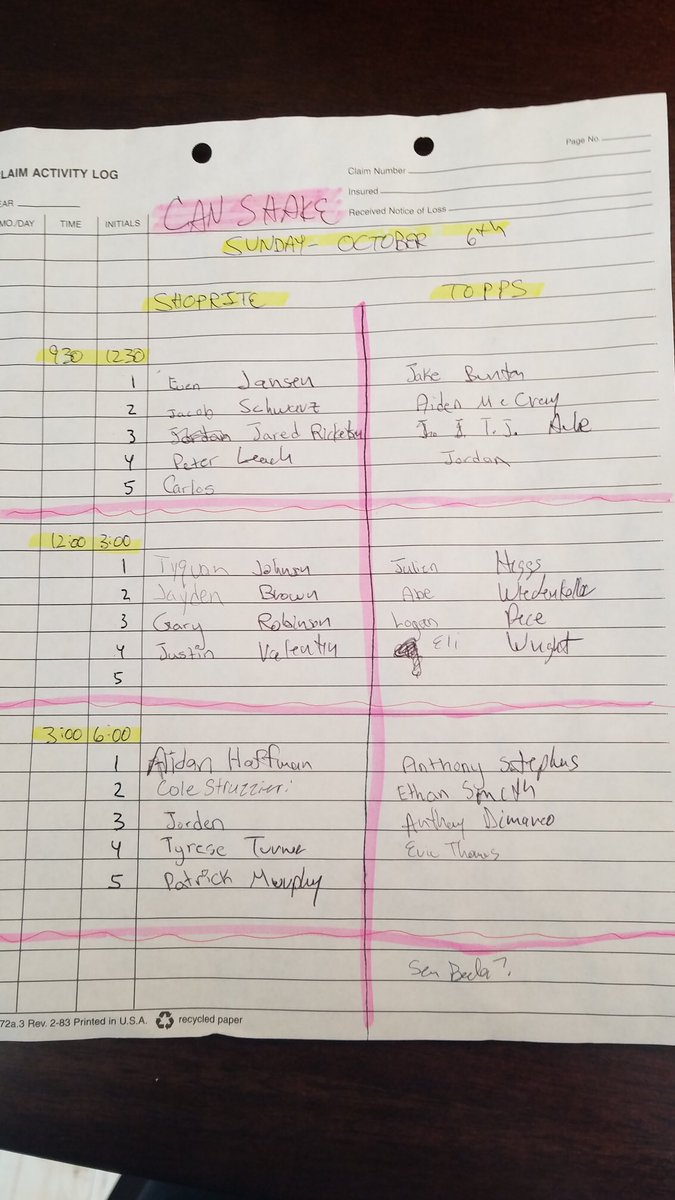 Page No.
LAIM ACTIVITY LOG
Claim Number
EAR
Insured
MO./DAY TIME INITIALS
CAN SHAKE
Received Notice of Loss
SUNDAY- OCTOBER 6th
SHOPRITE TOPPS
930 1230
1 Even Jansen Jake
2 Jacob Schwarz Aiden McCray
3 Jared T.J.
4 Peter Leach Jordan
5 Carlos
12:00 3:00
1 Tyquon Johnson Julien Higgs
2 Jayden Brown Abe
3 Gary Robinson Logan Pece
4 Justin Valentin Eli Wright
5
3:00 6:00
1 Aidan Hoffman Anthony
2 Cole Struzzieri Ethan
3 Jorden Anthony Dimarco
4 Tyrese Turner Eric Thomas
5 Patrick Murphy
72a.3 Rev. 2-83 Printed in U.S.A. recycled paper